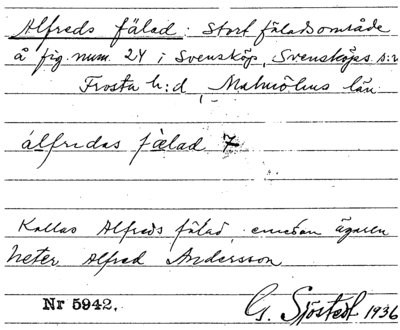 Alfreds fälad: Stort fäladsområde
å fig. num. 24 i Svensköp, Svensköps s:n
Frosta h:d, Malmöhus län.
álfrɩdas fɛ̀lad 7
Kallas Alfreds fälad, emedan ägaren
heter Alfred Andersson
Nr 5942. G. Sjöstedt 1936